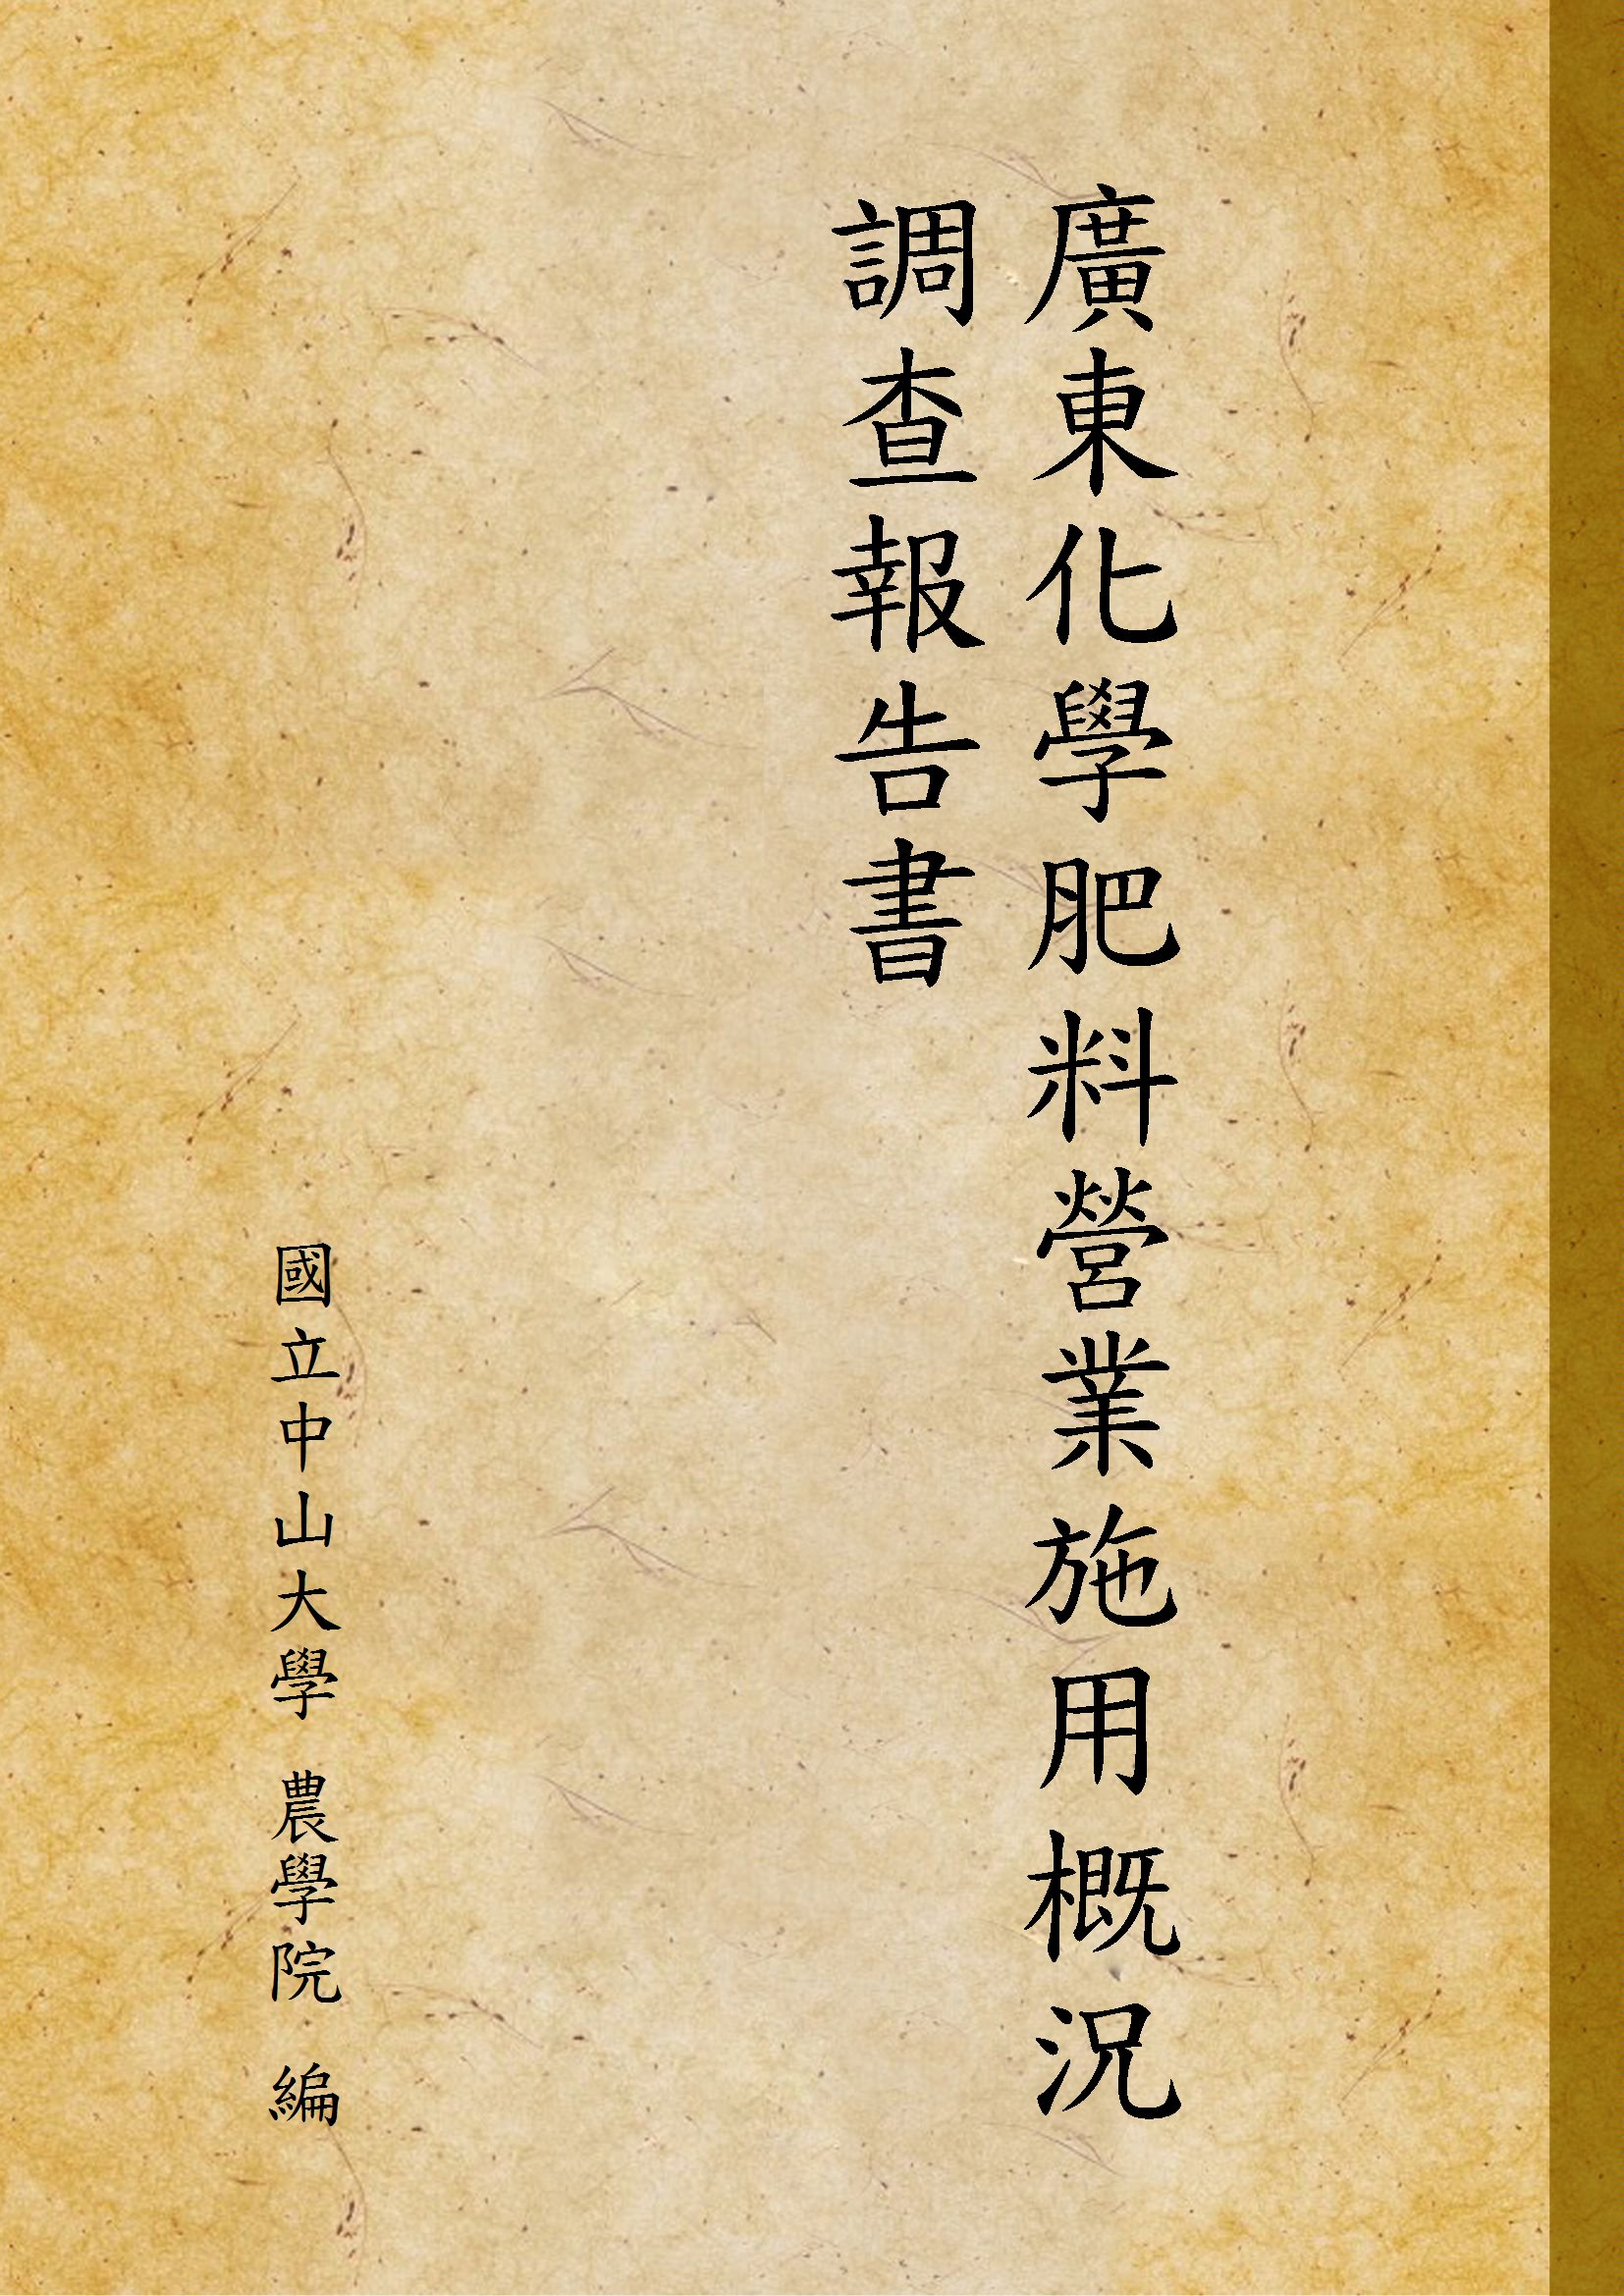 廣東化學肥料營業施用概況
調查報告書
國立中山大學 農學院 編